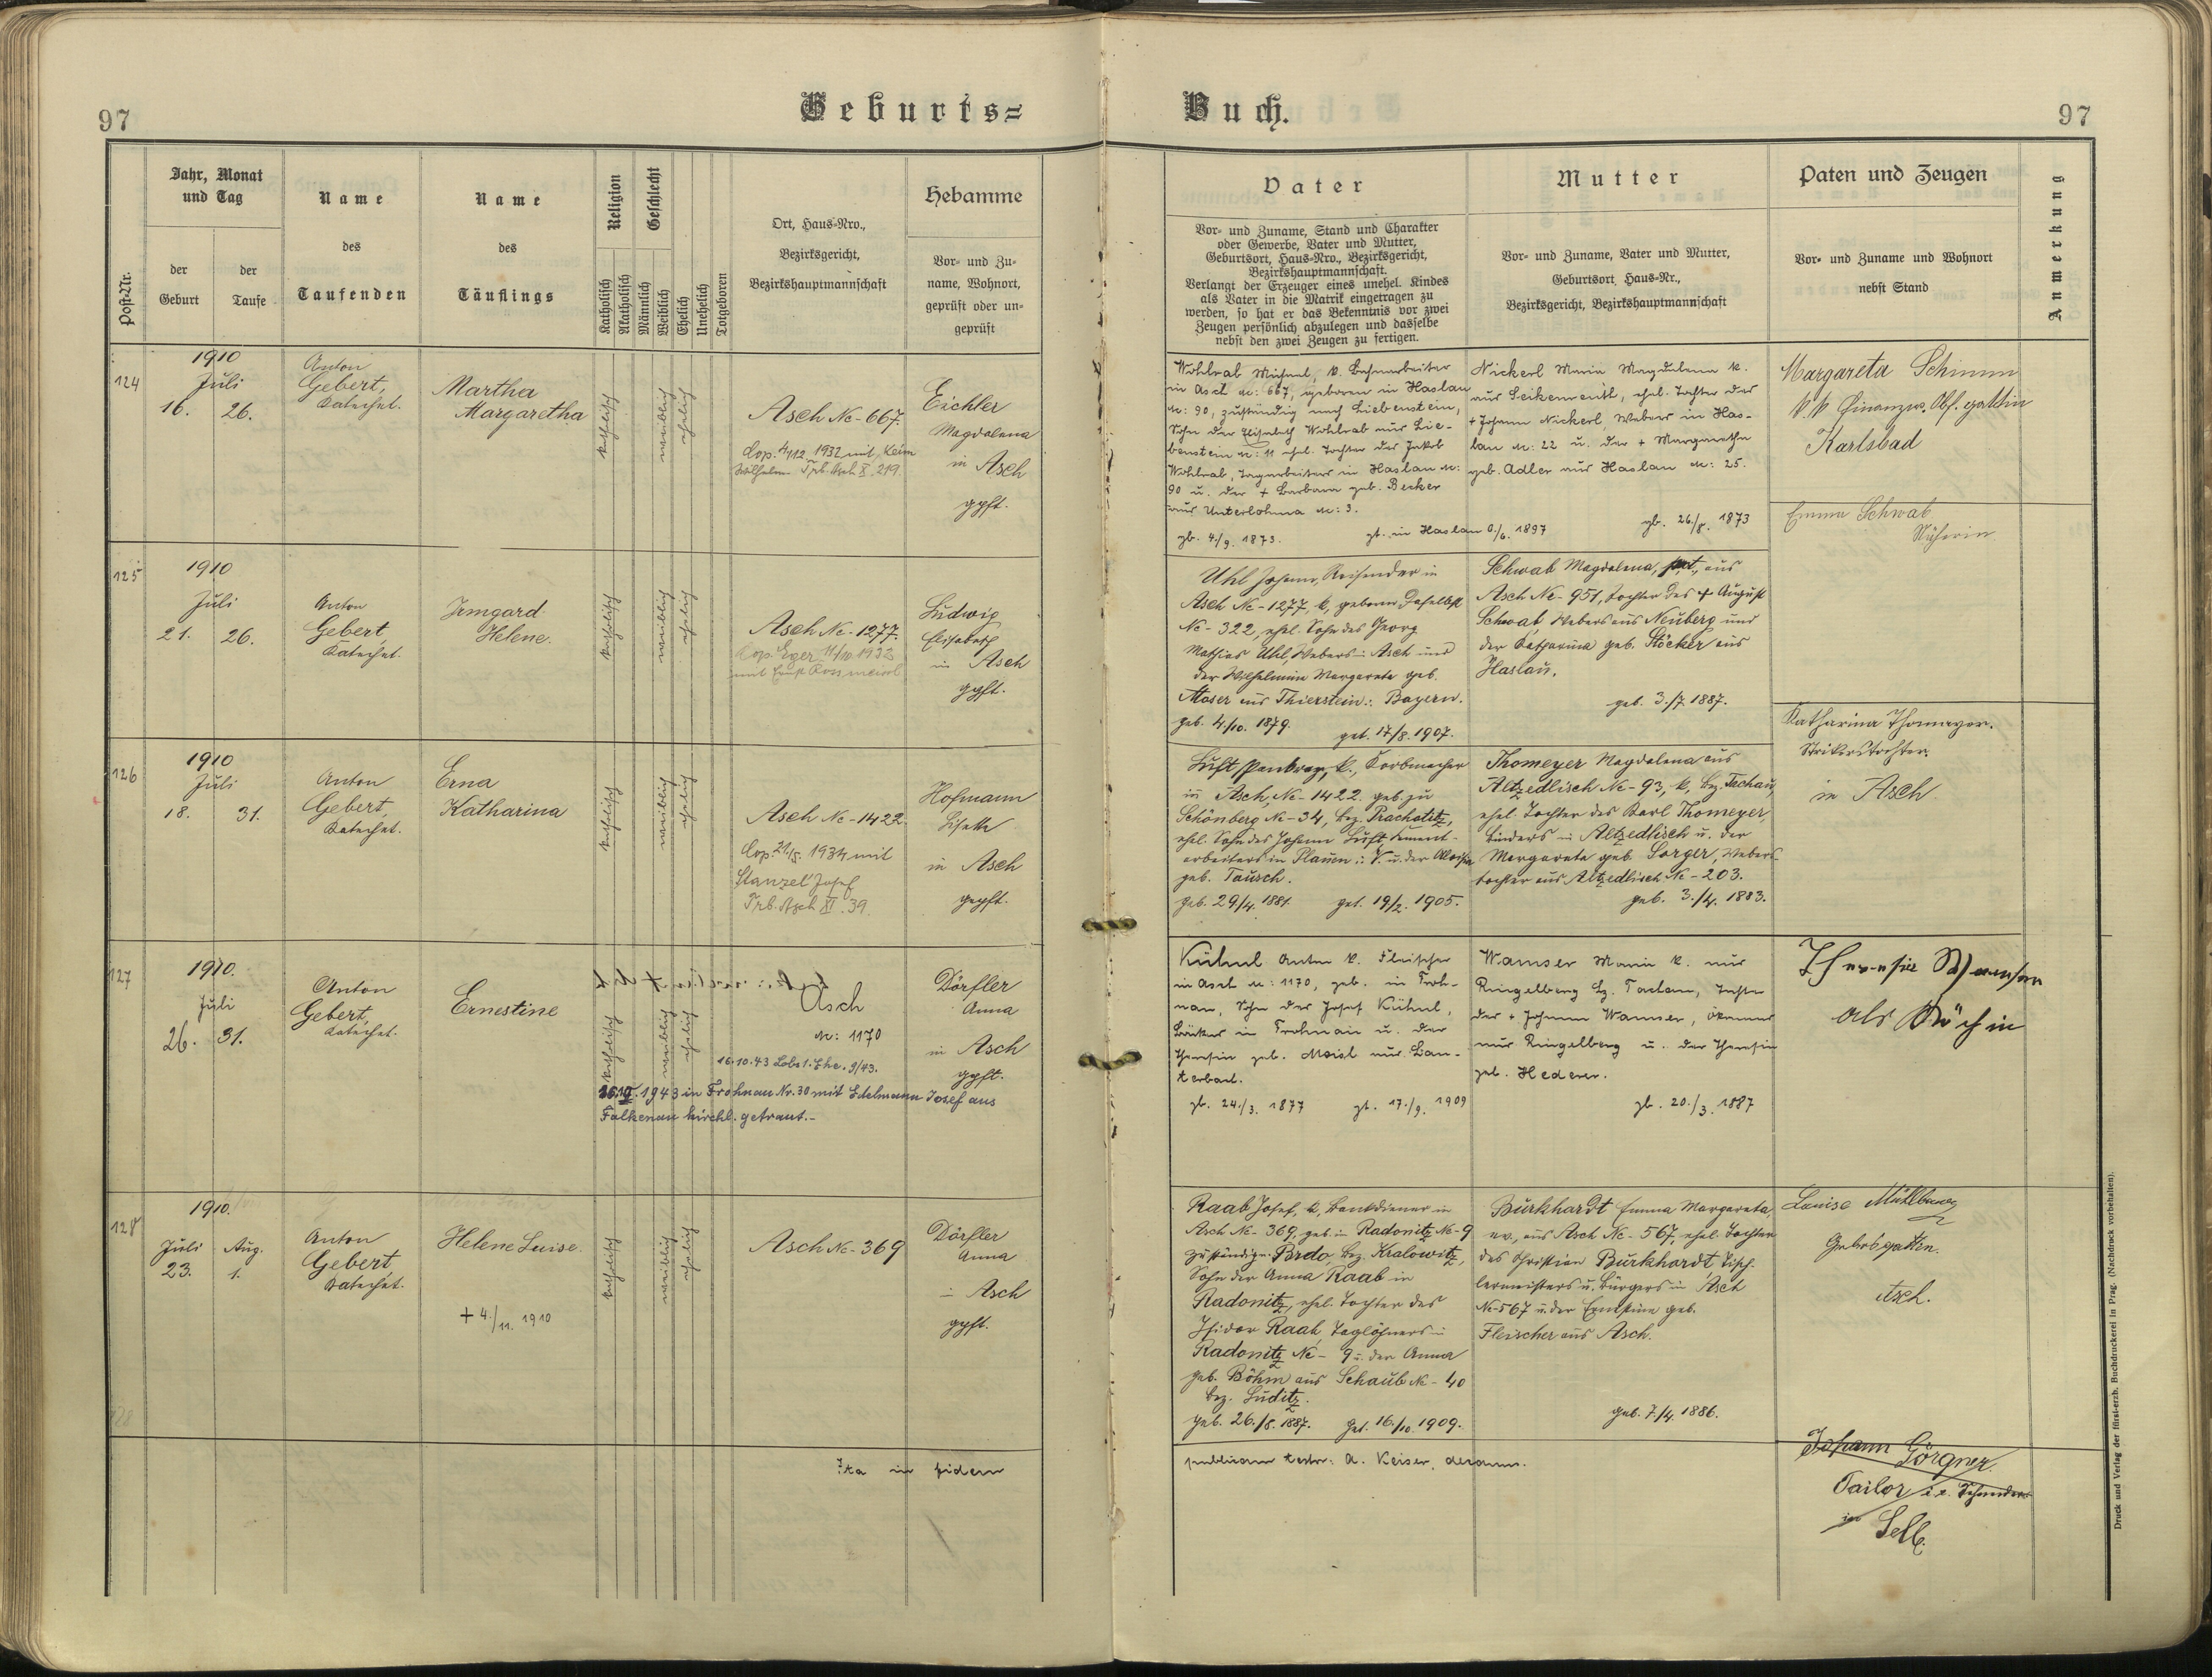 97
Geburts=
Buch.
97
Post-Nr.
Jahr, Monat
und Tag
der
Geburt
der
Taufe
Name
des
Taufenden
Name
des
Täuflings
Religion
Katholisch
Akatholisch
Geschlecht
Männlich
Weiblich
Ehelich
Unehelich
Totgeboren
Ort, Haus-Nro.,
Bezirksgericht,
Bezirkshauptmannschaft
Hebamme
Vor- und Zu-
name, Wohnort,
geprüft oder un-
geprüft
Vater
Vor- und Zuname, Stand und Charakter
oder Gewerbe, Vater und Mutter,
Geburtsort, Haus-Nro., Bezirksgericht,
Bezirkshauptmannschaft.
Verlangt der Erzeuger eines unehel. Kindes
als Vater in die Matrik eingetragen zu
werden, so hat er das Bekenntnis vor zwei
Zeugen persönlich abzulegen und dasselbe
nebst den zwei Zeugen zu fertigen.
Mutter
Vor- und Zuname, Vater und Mutter,
Geburtsort, Haus-Nr.,
Bezirksgericht, Bezirkshauptmannschaft
Paten und Zeugen
Vor- und Zuname und Wohnort
nebst Stand
Anmerkung
124
1910
Juli
16. 26.
Anton
Gebert,
Katechet.
Martha
Margaretha
katholisch
weiblich
ehelich
Asch No - 667.
Cop. 4/12 1932 mit Keim
Wilhelm Trb. Asch X. 219.
Eichler
Magdalena
in Asch
gpft.
Wohlrab Michael, k. Bahnarbeiter
in Asch N: 667, geboren in Haslau
N: 90, zuständig nach Liebenstein,
Sohn der Elisabeth Wohlrab aus Lie-
benstein N: 11 ehel. Tochter des Jakob
Wohlrab, Tagarbeiter in Haslau N:
90 u. der + Barbara geb. Becker
aus Unterlohma N: 3.
gb. 4/9. 1873. gt. in Haslau 6./6. 1897
Nickerl Maria Magdalena k.
aus Seikenreuth, ehel. Tochter des
+ Johann Nickerl, Webers in Has-
lau N: 22 u. der + Margaretha
geb. Adler aus Haslau N: 25.
gb. 26./8. 1873
Margareta Schimm
k.k. Finanzw. Obf. gattin
Karlsbad
125
1910
Juli
21. 26.
Anton
Gebert,
Katechet.
Irmgard
Helene.
katholisch
weiblich
ehelich
Asch No - 1277.
Cop. Eger 1932
Ludwig
Elisabeth
in Asch
gpft.
Uhl Johann, Reisender in
Asch No - 1277, k, geboren daselbst
No - 322, ehel. Sohn des Georg
Mathias Uhl, Webers in Asch und
der Wilhelmine Margareta geb.
Moser aus Thierstein i. Bayern.
geb. 4/10. 1879. get. 17/8. 1907.
Schwab Magdalena, aus
Asch No - 951, Tochter des + August
Schwab Webers aus Neuberg und
der Katharina geb. Stöcker aus
Haslau.
geb. 3./7. 1887.
Emma Schwab
Näherin
126
1910
Juli
18. 31.
Anton
Gebert,
Katechet.
Erna
Katharina
katholisch
weiblich
ehelich
Asch No - 1422.
Cop. 21/5. 1934 mit
Stanzel Josef
Trb. Asch XI. 39.
Hofmann
Lisette
in Asch
gepft.
Luft Pankraz, k., Korbmacher
in Asch, No - 1422. geb. zu
Schönberg No - 34, bez. Prachatitz,
ehel. Sohn des Johann Luft, Cement-
arbeiters in Plauen i. V. u. der Aloisia
geb. Tausch.
geb. 29/4. 1881. get. 19/2. 1905.
Thomeyer Magdalena aus
Altzedlisch No - 93, k, bez. Tachau,
ehel. Tochter des Karl Thomeyer,
Binders in Altzedlisch u. der
Margareta geb. Sorger, Webers-
tochter aus Altzedlisch No - 203.
geb. 3./4. 1883.
Katharina Thomayer.
Strikerstochter.
in Asch.
127
1910.
Juli
26. 31.
Anton
Gebert,
Katechet.
Ernestine
katholisch
weiblich
ehelich
Asch
N: 1170
16.10.43 Lobs 1. Ehe. 9/43.
1943 in Frohnau Nr. 30 mit Edelmann Josef aus
Falkenau kirchl. getraut.-
Dörfler
Anna
in Asch
gpft.
Kühnl Anton k. Fleischer
in Asch N: 1170, geb. in Froh-
nau, Sohn des Josef Kühnl,
Bäcker in Frohnau u. der
Theresia geb. Moisl aus Lau-
terbach.
gb. 24./3. 1877 gt. 17./9. 1909
Wamser Maria k. aus
Ringelberg bz. Tachau, Tochter
des + Johann Wamser, Ökonomen
aus Ringelberg u. der Theresia
geb. Hederer.
gb. 20./3. 1887
Theresia Wamser
als Köchin
128
1910.
Juli Aug.
23. 1.
Anton
Gebert,
Katechet.
Helene Luise.
+ 4./11. 1910
katholisch
weiblich
ehelich
Asch No - 369
Dörfler
Anna
in Asch
gpft.
Raab Josef, k, Bankdiener in
Asch No - 369, geb. in Radonitz No - 9
zuständig n. Brdo, bez. Kralowitz,
Sohn der Anna Raab in
Radonitz, ehel. Tochter des
Isidor Raab, Taglöhners in
Radonitz No - 9 u. der Anna
geb. Böhm aus Schaub No - 40
bez. Luditz.
geb. 26./5. 1887. get. 16./10. 1909.
Burkhardt Emma Margareta,
ev., aus Asch No - 567, ehel. Tochter
des Christian Burkhardt, Tisch-
lermeisters u. Bürgers in Asch
No - 567 u. der Ernstine geb.
Fleischer aus Asch.
geb. 7./4. 1886.
Louise
Asch.
Ita in fidem
publicam testor: A. Keiser, decanus.
Johann Görgner.
Tailor i.e. Schneider
in Selb.
Druck und Verlag der fürst-erzb. Buchdruckerei in Prag. (Nachdruck vorbehalten).